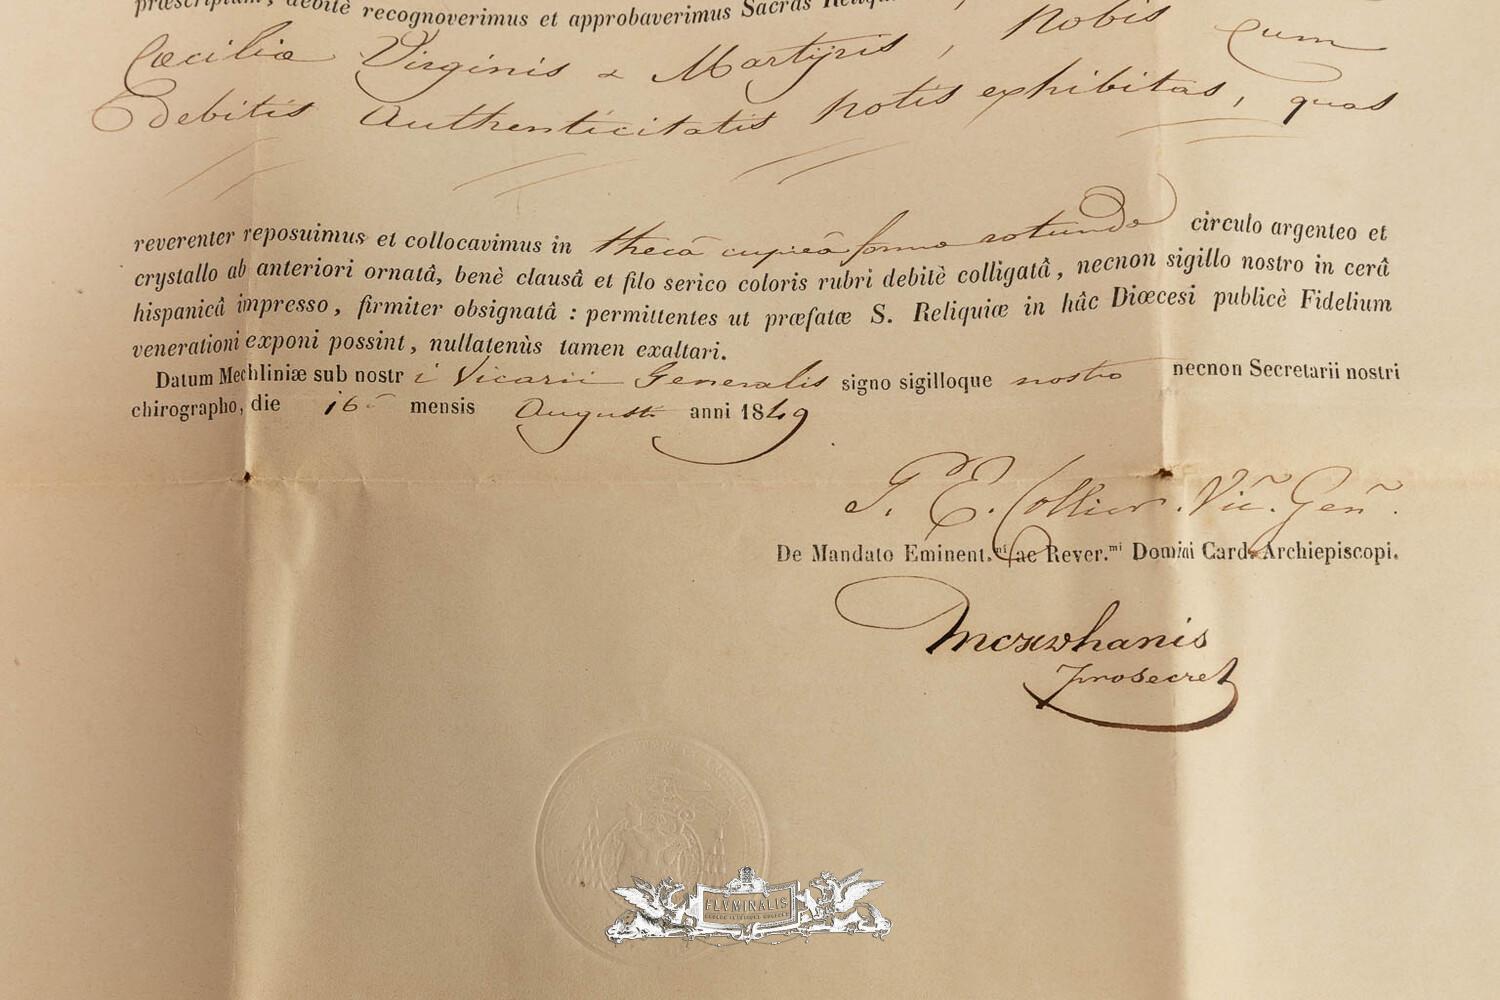 præscriptum, debitè recognoverimus et approbaverimus Sacras Reliqu
Cæciliæ Virginis & Martyris, nobis cum
Debitis Authenticitatis notis exhibitas, quas
reverenter reposuimus et collocavimus in thecâ cupreâ formæ rotundæ circulo argenteo et
crystallo ab anteriori ornatâ, benè clausâ et filo serico coloris rubri debitè colligatâ, necnon sigillo nostro in cerâ
hispanicâ impresso, firmiter obsignatâ : permittentes ut præfatæ S. Reliquiæ in hâc Diœcesi publicè Fidelium
venerationi exponi possint, nullatenùs tamen exaltari.
Datum Mechliniæ sub nostri Vicarii Generalis signo sigilloque nostro necnon Secretarii nostri
chirographo, die 16 mensis Augusti anni 1849
E. Collier. Vic. Gen.
De Mandato Eminent.mi ac Rever.mi Domini Card. Archiepiscopi.
prosecret
FLVMINALIS